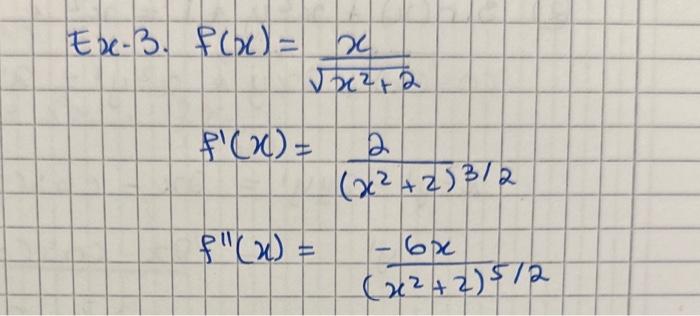 Ex-3. f(x) = x / √x² + 2
f'(x) = 2 / (x² + 2)3/2
f''(x) = -6x / (x² + 2)5/2